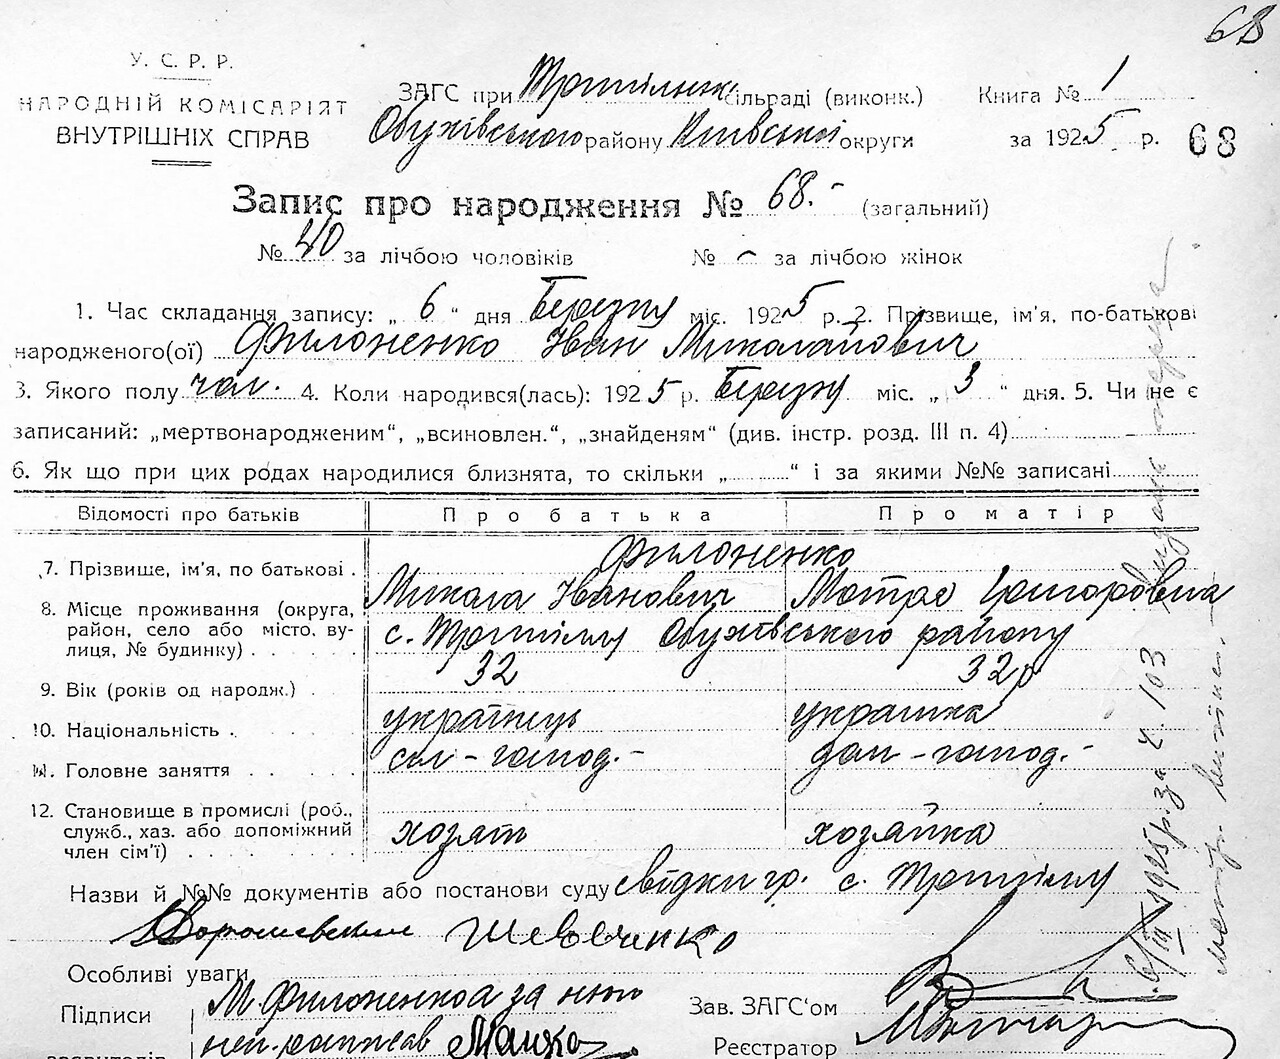 68
У. С. Р. Р.
НАРОДНІЙ КОМІСАРІЯТ
ВНУТРІШНІХ СПРАВ
ЗАГС при Трипільск. сільраді (виконк.)
Обухівського району Київської округи
Книга № 1
за 1925 р. 68
Запис про народження № 68.- (загальний)
№ 40 за лічбою чоловіків № – за лічбою жінок
1. Час складання запису: „ 6 “ дня Березня міс. 1925 р. 2. Прізвище, ім'я, по-батькові
народженого(ої) Филоненко Іван Миколайович
3. Якого полу чол. 4. Коли народився(лась): 1925 р. Березня міс. „ 3 “ дня. 5. Чи не є
записаний: „мертвонародженим“, „всиновлен.“, „знайденям“ (див. інстр. розд. III п. 4)
6. Як що при цих родах народилися близнята, то скільки „ “ і за якими №№ записані
Відомості про батьків Про батька Про матір
Филоненко
7. Прізвище, ім'я, по батькові . Микола Іванович Мотря Григоровна
8. Місце проживання (округа, район, село або місто, ву-
лиця, № будинку) . . . . . с. Трипілля Обухівського району
9. Вік (років од народж.) . 32 32
10. Національність . українець українка
11. Головне заняття . . . . . сіл - господ. - дом - господ. -
12. Становище в промислі (роб.,
служб., хаз. або допоміжний
член сім'ї) . . . . . . хозяїн хозяйка
Назви й №№ документів або постанови суду свідки гр. с. Трипілля
Шевченко
Особливі уваги
Підписи М. Филоненко а за нею
неп. розписав
Зав. ЗАГС'ом
Реєстратор
6/III 1925 р. за ч. 103